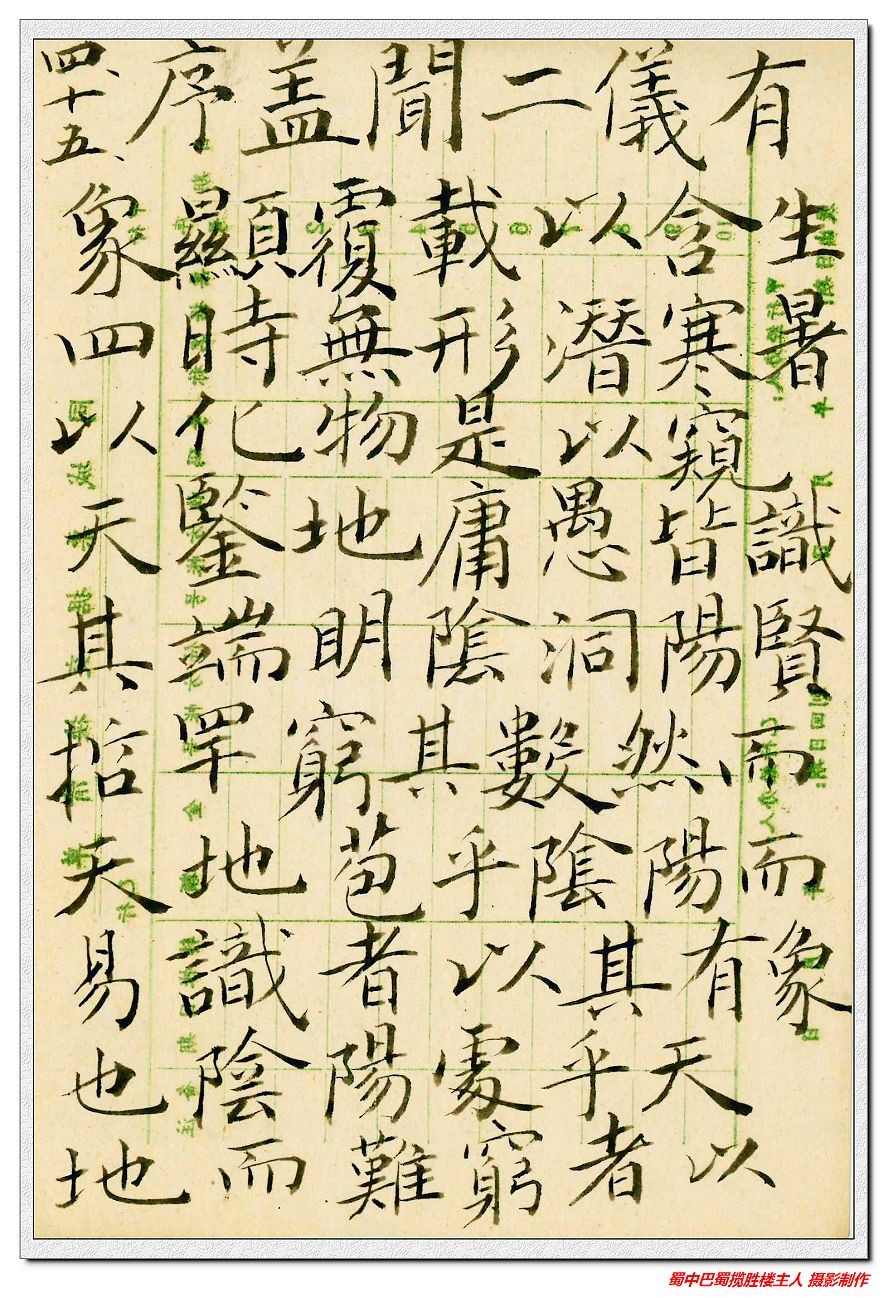 四、十五、序盖聞二儀有
象顯覆載以含生
四時無形潛寒暑
以化物是以窺
天鑒地庸愚皆識
其端明陰洞陽賢
哲罕窮其數然而
天地苞乎陰陽而
易識者以其有象
也陰陽處乎天
地而難窮者以
蜀中巴蜀揽胜楼主人 摄影制作